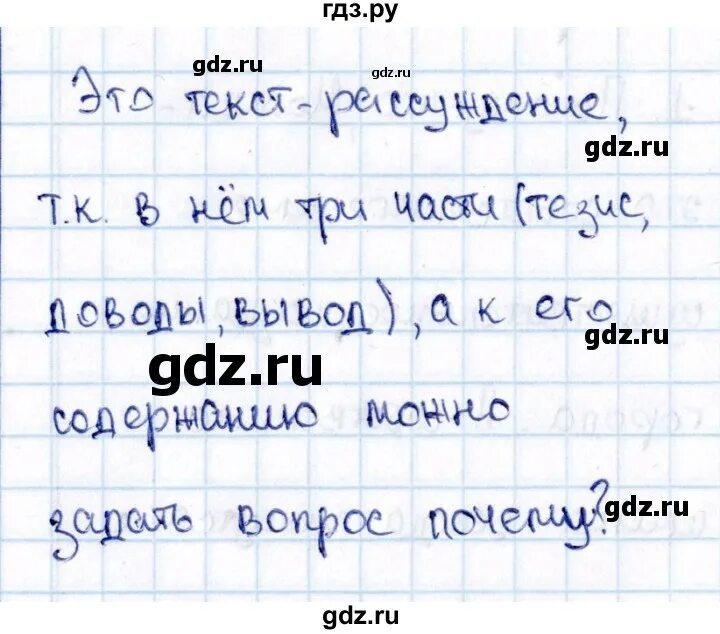 гдз.ру
gdz.ru gdz.ru
Это текст-рассуждение,
gdz.ru
т.к. в нём три части (тезис,
доводы, вывод), а к его
gdz.ru
gdz.ru
содержанию можно
задать вопрос почему?
gdz.ru
gdz.ru